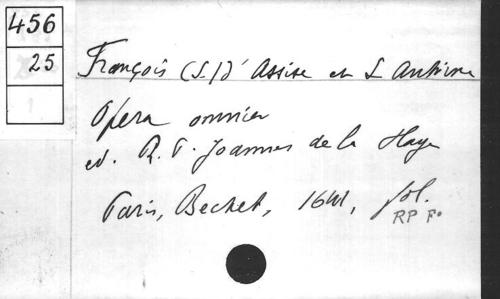 456
25
François (S.) d'Assise et S. Antoine
Opera omnia
ed. R. P. Joannes de la Haye
Paris, Bechet, 1641, fol.
RP Fo